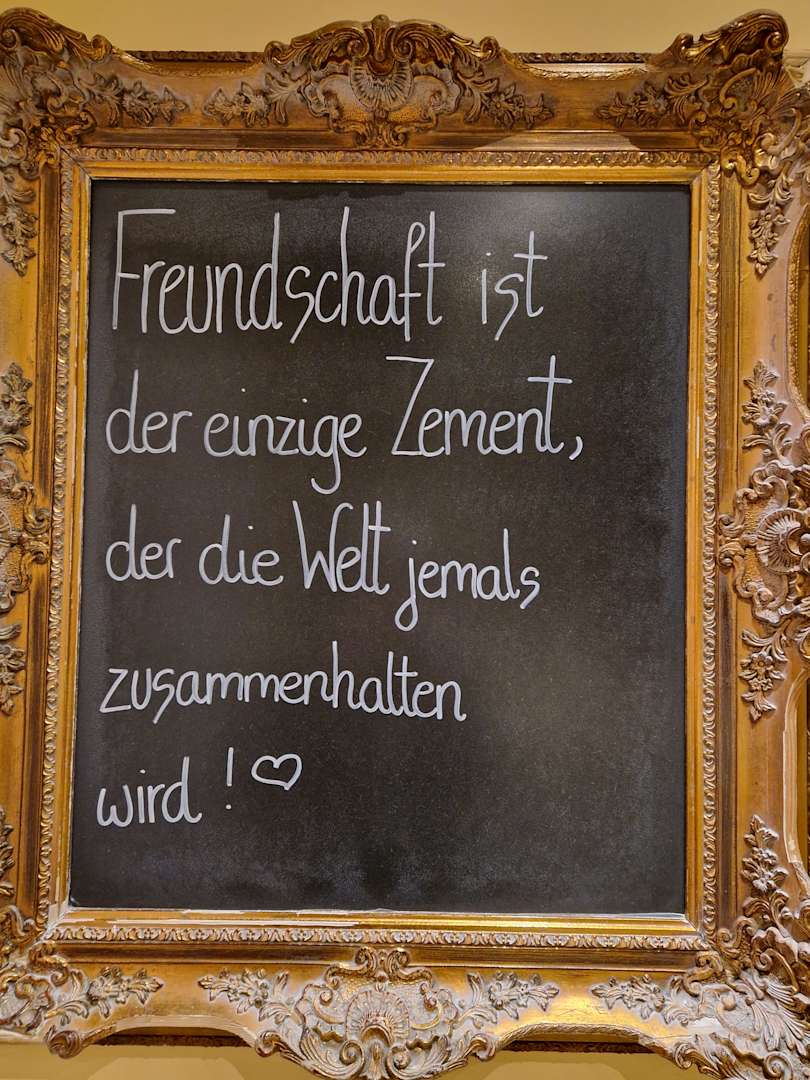 Freundschaft ist
der einzige Zement,
der die Welt jemals
zusammenhalten
wird ! ♡